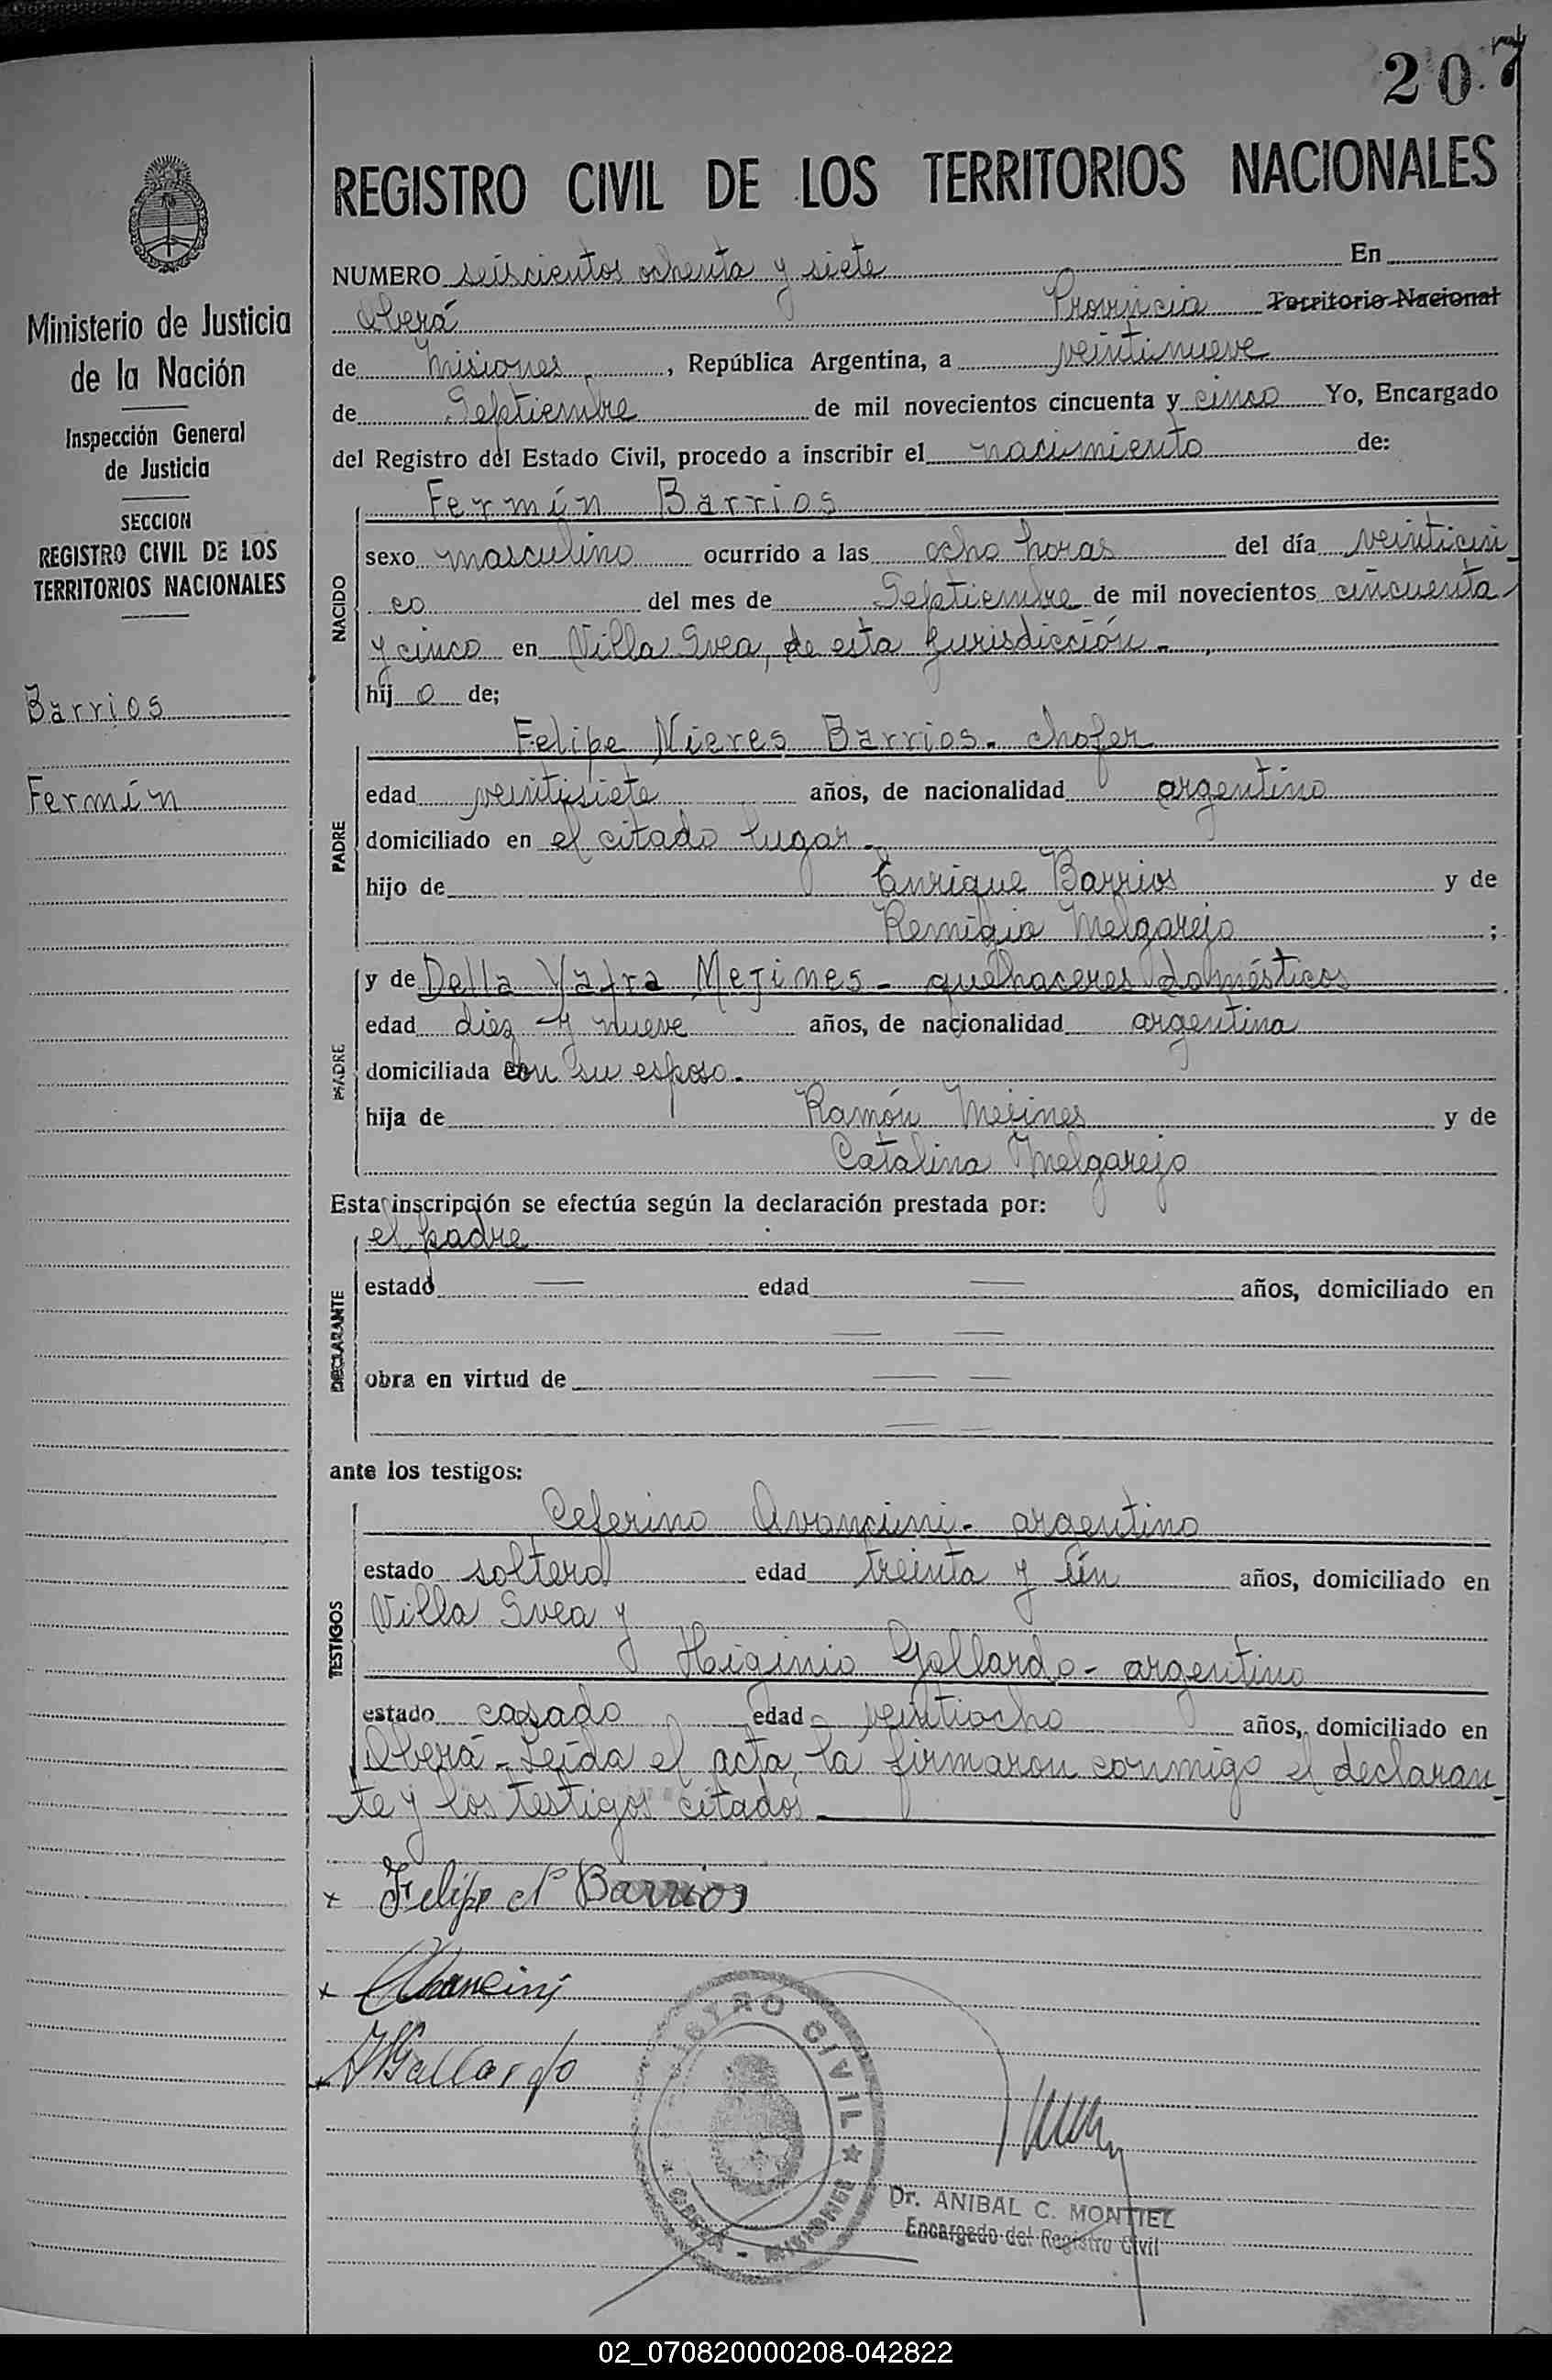 207
REGISTRO CIVIL DE LOS TERRITORIOS NACIONALES
Ministerio de Justicia
de la Nación
Inspección General
de Justicia
SECCION
REGISTRO CIVIL DE LOS
TERRITORIOS NACIONALES
Barrios
Fermín
NUMERO seiscientos ochenta y siete En
Oberá Provincia Territorio Nacional
de Misiones, República Argentina, a veintinueve
de Septiembre de mil novecientos cincuenta y cinco Yo, Encargado
del Registro del Estado Civil, procedo a inscribir el nacimiento de:
NACIDO
Fermín Barrios
sexo masculino ocurrido a las ocho horas del día veinticin-
co del mes de Septiembre de mil novecientos cincuenta
y cinco en Villa Svea, de esta jurisdicción.-
hijo de;
PADRE
Felipe Nieres Barrios.- chofer
edad veintisiete años, de nacionalidad argentino
domiciliado en el citado lugar.-
hijo de Enrique Barrios y de
Remigia Melgarejo ;
MADRE
y de Della Yafra Mejines - quehaceres domésticos
edad diez y nueve años, de nacionalidad argentina
domiciliada con su esposo.-
hija de Ramón Mejines y de
Catalina Melgarejo
Esta inscripción se efectúa según la declaración prestada por:
DECLARANTE
el padre
estado — edad — años, domiciliado en
— —
obra en virtud de — —
— —
ante los testigos:
TESTIGOS
Ceferino Avancini.- argentino
estado soltero edad treinta y ún años, domiciliado en
Villa Svea y
Higinio Gallardo - argentino
estado casado edad veintiocho años, domiciliado en
Oberá - Leída el acta, la firmaron conmigo el declaran-
te y los testigos citados.-
x Felipe N Barrios
x CAvancini
x HGallardo
REGISTRO CIVIL ★ OBERA - MISIONES
Dr. ANIBAL C. MONTIEL
Encargado del Registro Civil
02_070820000208-042822